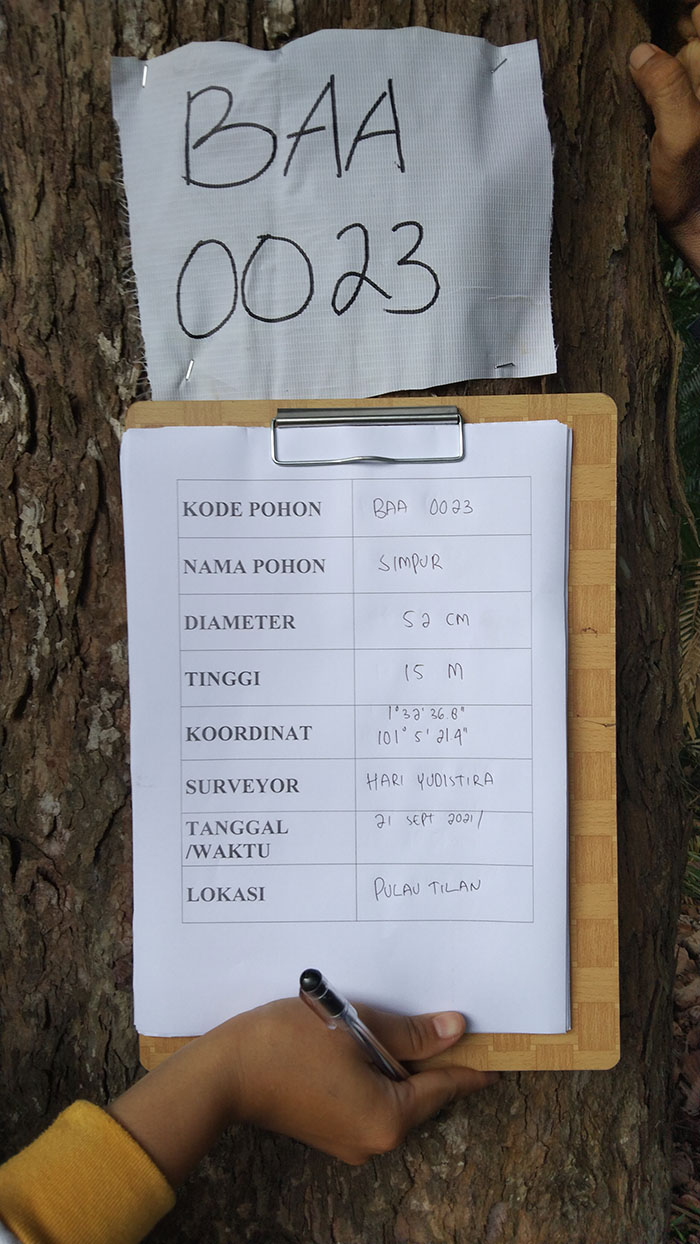 BAA
0023
KODE POHON BAA 0023
NAMA POHON SIMPUR
DIAMETER 52 CM
TINGGI 15 M
1°32'36.8"
KOORDINAT 101° 5' 21.4"
SURVEYOR HARI YUDISTIRA
TANGGAL 21 SEPT 2021/
/WAKTU
LOKASI PULAU TILAN